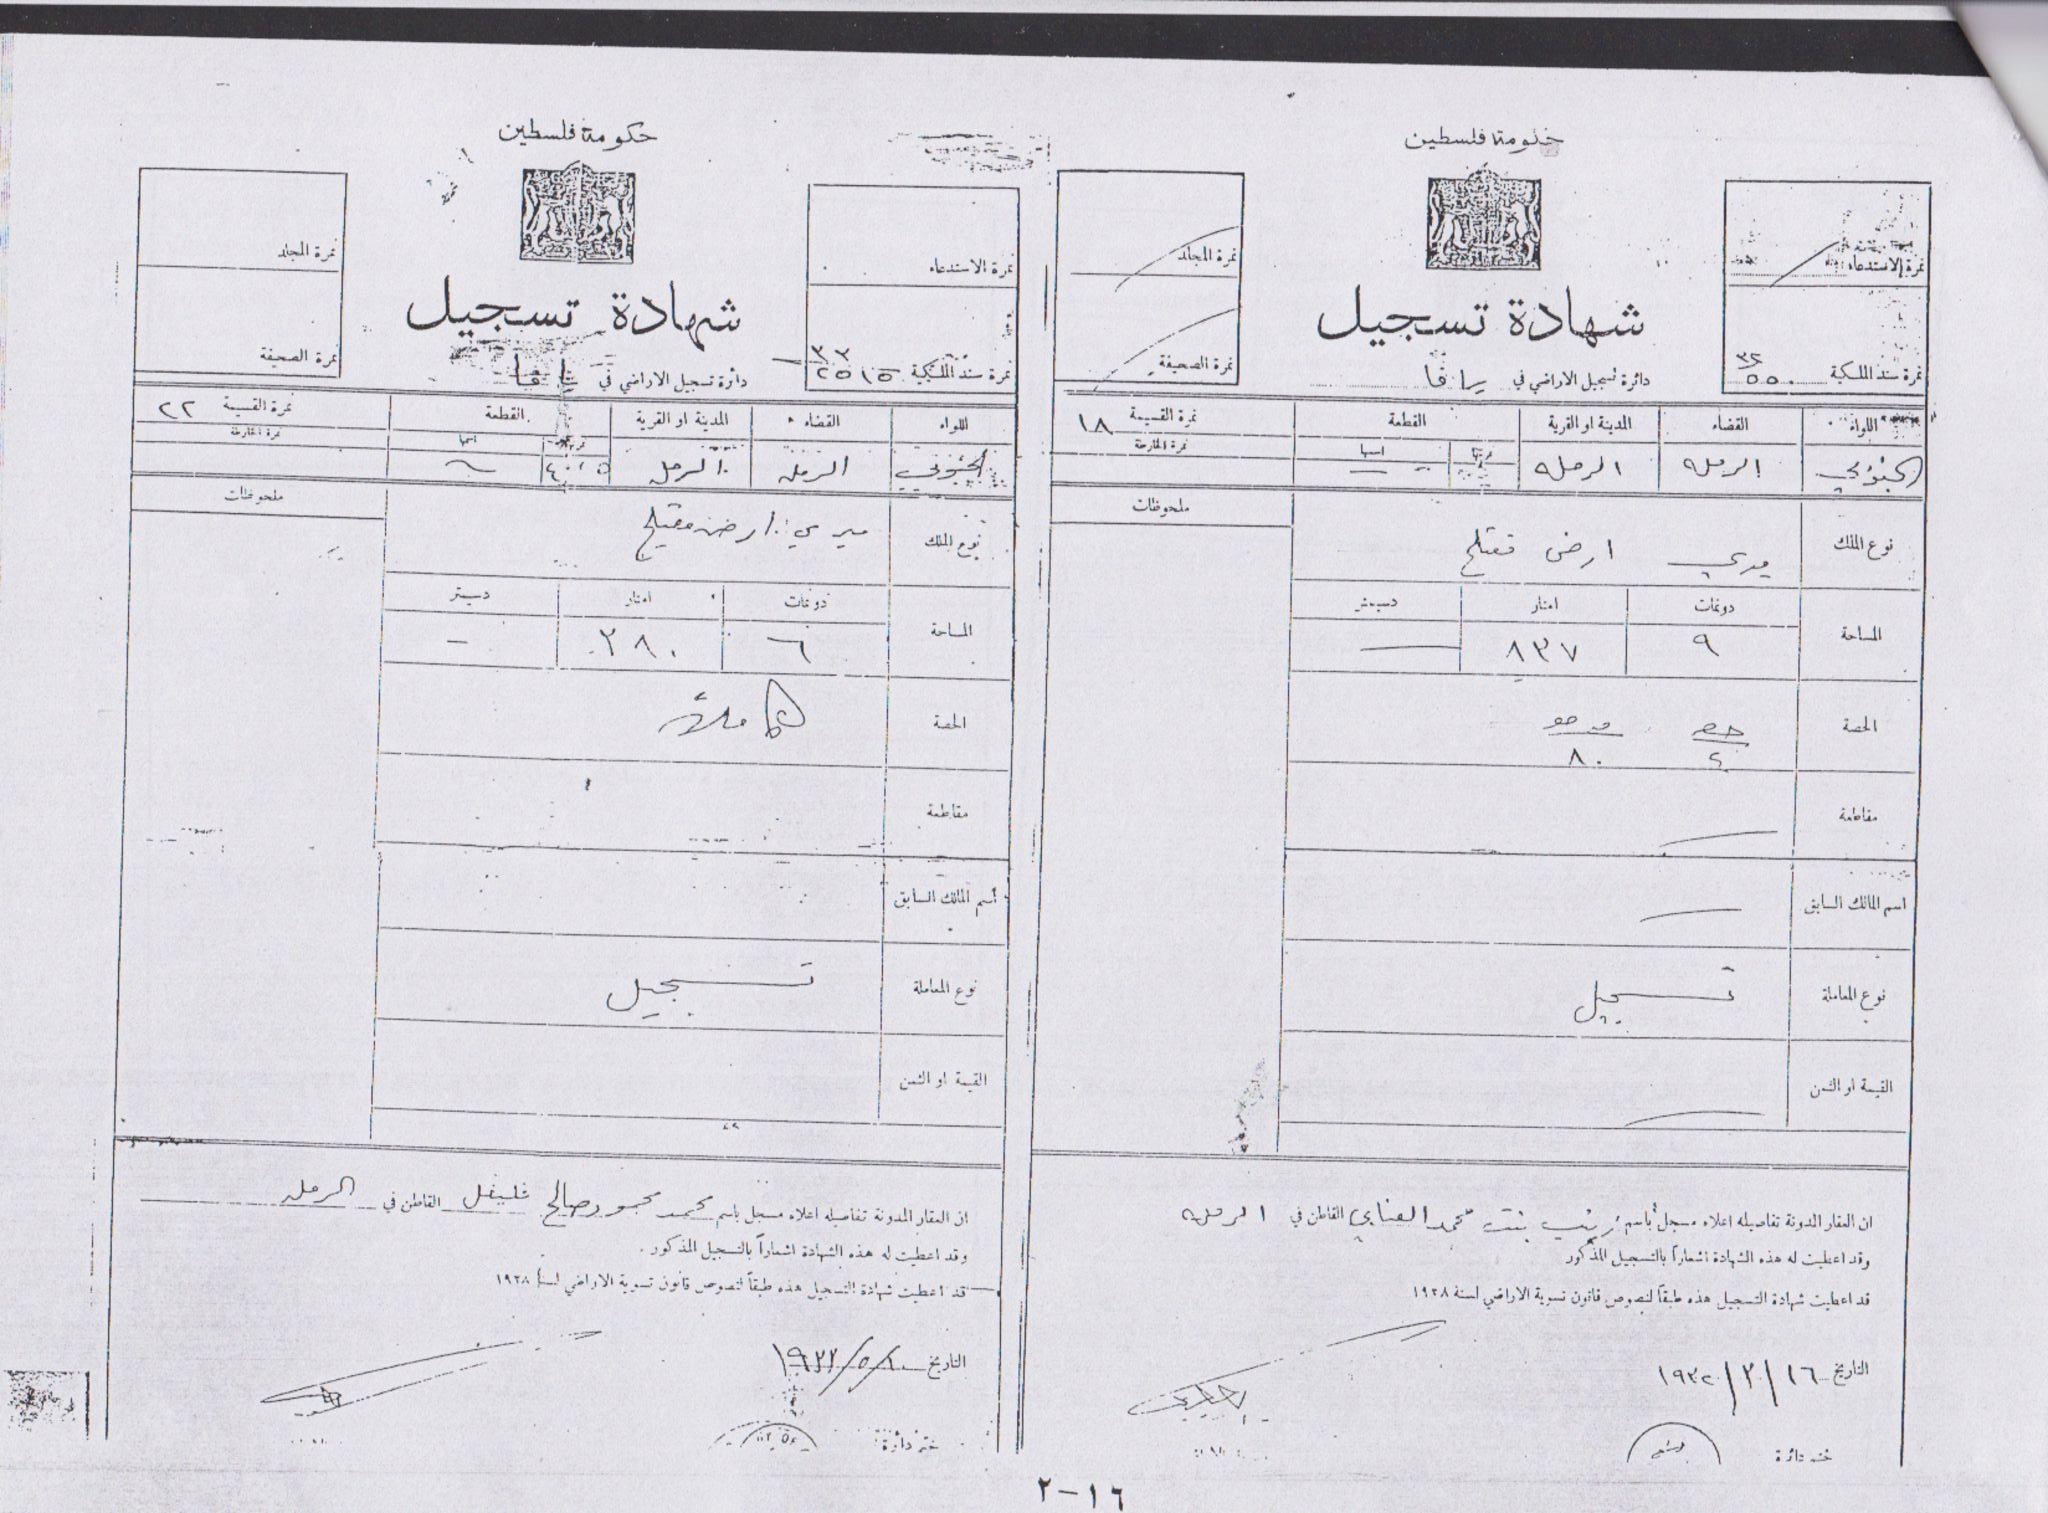 حكومة فلسطين
نمرة الاستدعاء
نمرة المجلد
شهادة تسجيل
نمرة سند الملكية ٣٢ / ٥٥٠
نمرة الصحيفة
دائرة تسجيل الاراضي في يافا
اللواء القضاء المدينة او القرية القطعة نمرة القسيمة ١٨
نمرتها اسمها نمرة الخارطة
الجنوبي الرمله الرمله —
ملحوظات
نوع الملك ميري ارض مفتلح
دونمات امتار دسيمتر
المساحة ٩ ٨٣٧ —
الحصة
٨٠
مقاطعة
اسم المالك السابق
نوع المعاملة تسجيل
القيمة او الثمن
ان العقار المدونة تفاصيله اعلاه مسجل باسم زينب بنت محمد القاطن في الرمله
وقد اعطيت له هذه الشهادة اشعاراً بالتسجيل المذكور
قد اعطيت شهادة التسجيل هذه طبقاً لنصوص قانون تسوية الاراضي لسنة ١٩٢٨
التاريخ ١٦/٣/١٩٣٢
ختم دائرة
حكومة فلسطين
نمرة الاستدعاء
نمرة المجلد
شهادة تسجيل
نمرة سند الملكية
نمرة الصحيفة
دائرة تسجيل الاراضي في يافا
اللواء القضاء المدينة او القرية القطعة نمرة القسيمة ٢٢
اسمها نمرة الخارطة
الجنوبي الرمله الرمله
ملحوظات
نوع الملك ميري ارض مفتلح
دونمات امتار دسيمتر
المساحة ٦ ٢٨٠ -
الحصة كاملا
مقاطعة
اسم المالك السابق
نوع المعاملة تسجيل
القيمة او الثمن
ان العقار المدونة تفاصيله اعلاه مسجل باسم محمد محمود صالح فليفل القاطن في الرمله
وقد اعطيت له هذه الشهادة اشعاراً بالتسجيل المذكور.
قد اعطيت شهادة التسجيل هذه طبقاً لنصوص قانون تسوية الاراضي لسنة ١٩٢٨
التاريخ
ختم دائرة
٢-١٦